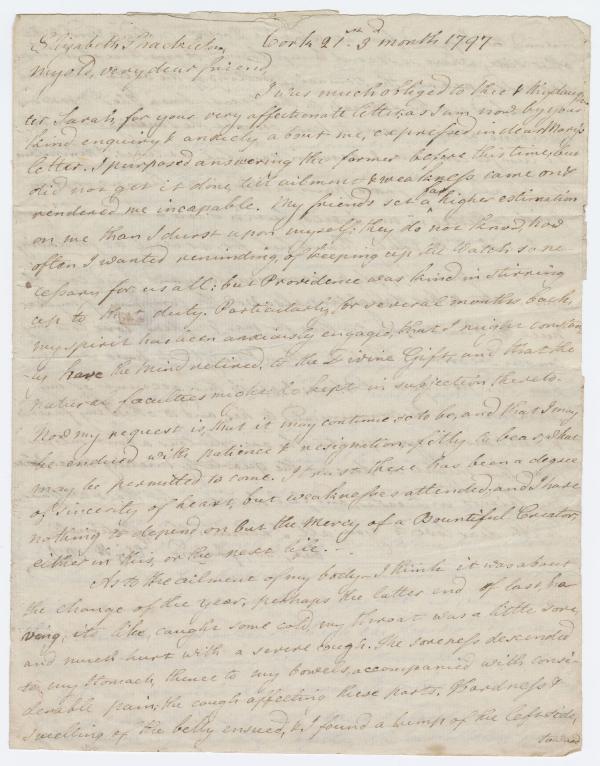 Elizabeth Shackleton, Cork 21st 3d month 1797
My old, very dear friend,
I was much obliged to thee & thy daugh
ter Sarah for your very affectionate letter, as I am now by your
kind enquiry & anxiety about me, expressed in dear Mary's
letter. I purposed answering the former before this time, but
did not get it done, till ailment & weakness came on &
rendered me incapable. My friends set a far higher estimation
on me than I durst upon myself: they do not know, how
often I wanted reminding, of keeping up the Watch so ne
cessary for us all: but Providence was kind in stirring
up to the duty. Particularly, for several months back,
my spirit has been anxiously engaged, that I might constant
ly have the mind retired, to the Divine Gift, and that the
natural faculties might be kept in subjection thereto.
Now my request is, that it may continue so to be, and that I may
be endued with patience & resignation, fitly to bear, what
may be permitted to come. I trust there has been a degree
of sincerity of heart, but weaknesses attended, and I have
nothing to depend on but the Mercy of a Bountiful Creator,
either in this, or the next life.
As to the ailment of my body – I think it was about
the change of the year, perhaps the latter end of last, ha
ving, its like, caught some cold, my throat was a little sore,
and much hurt with a severe cough. The soreness descended
to my stomach, thence to my bowels, accompanied with consi-
derable pain, the cough affecting these parts. Hardness &
swelling of the belly ensued, & I found a lump of the left side,